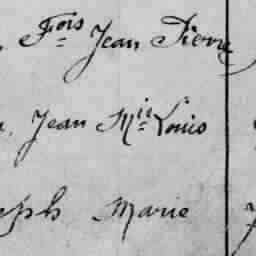 Fois Jean Pierre
Jean Mie Louis
eph Marie